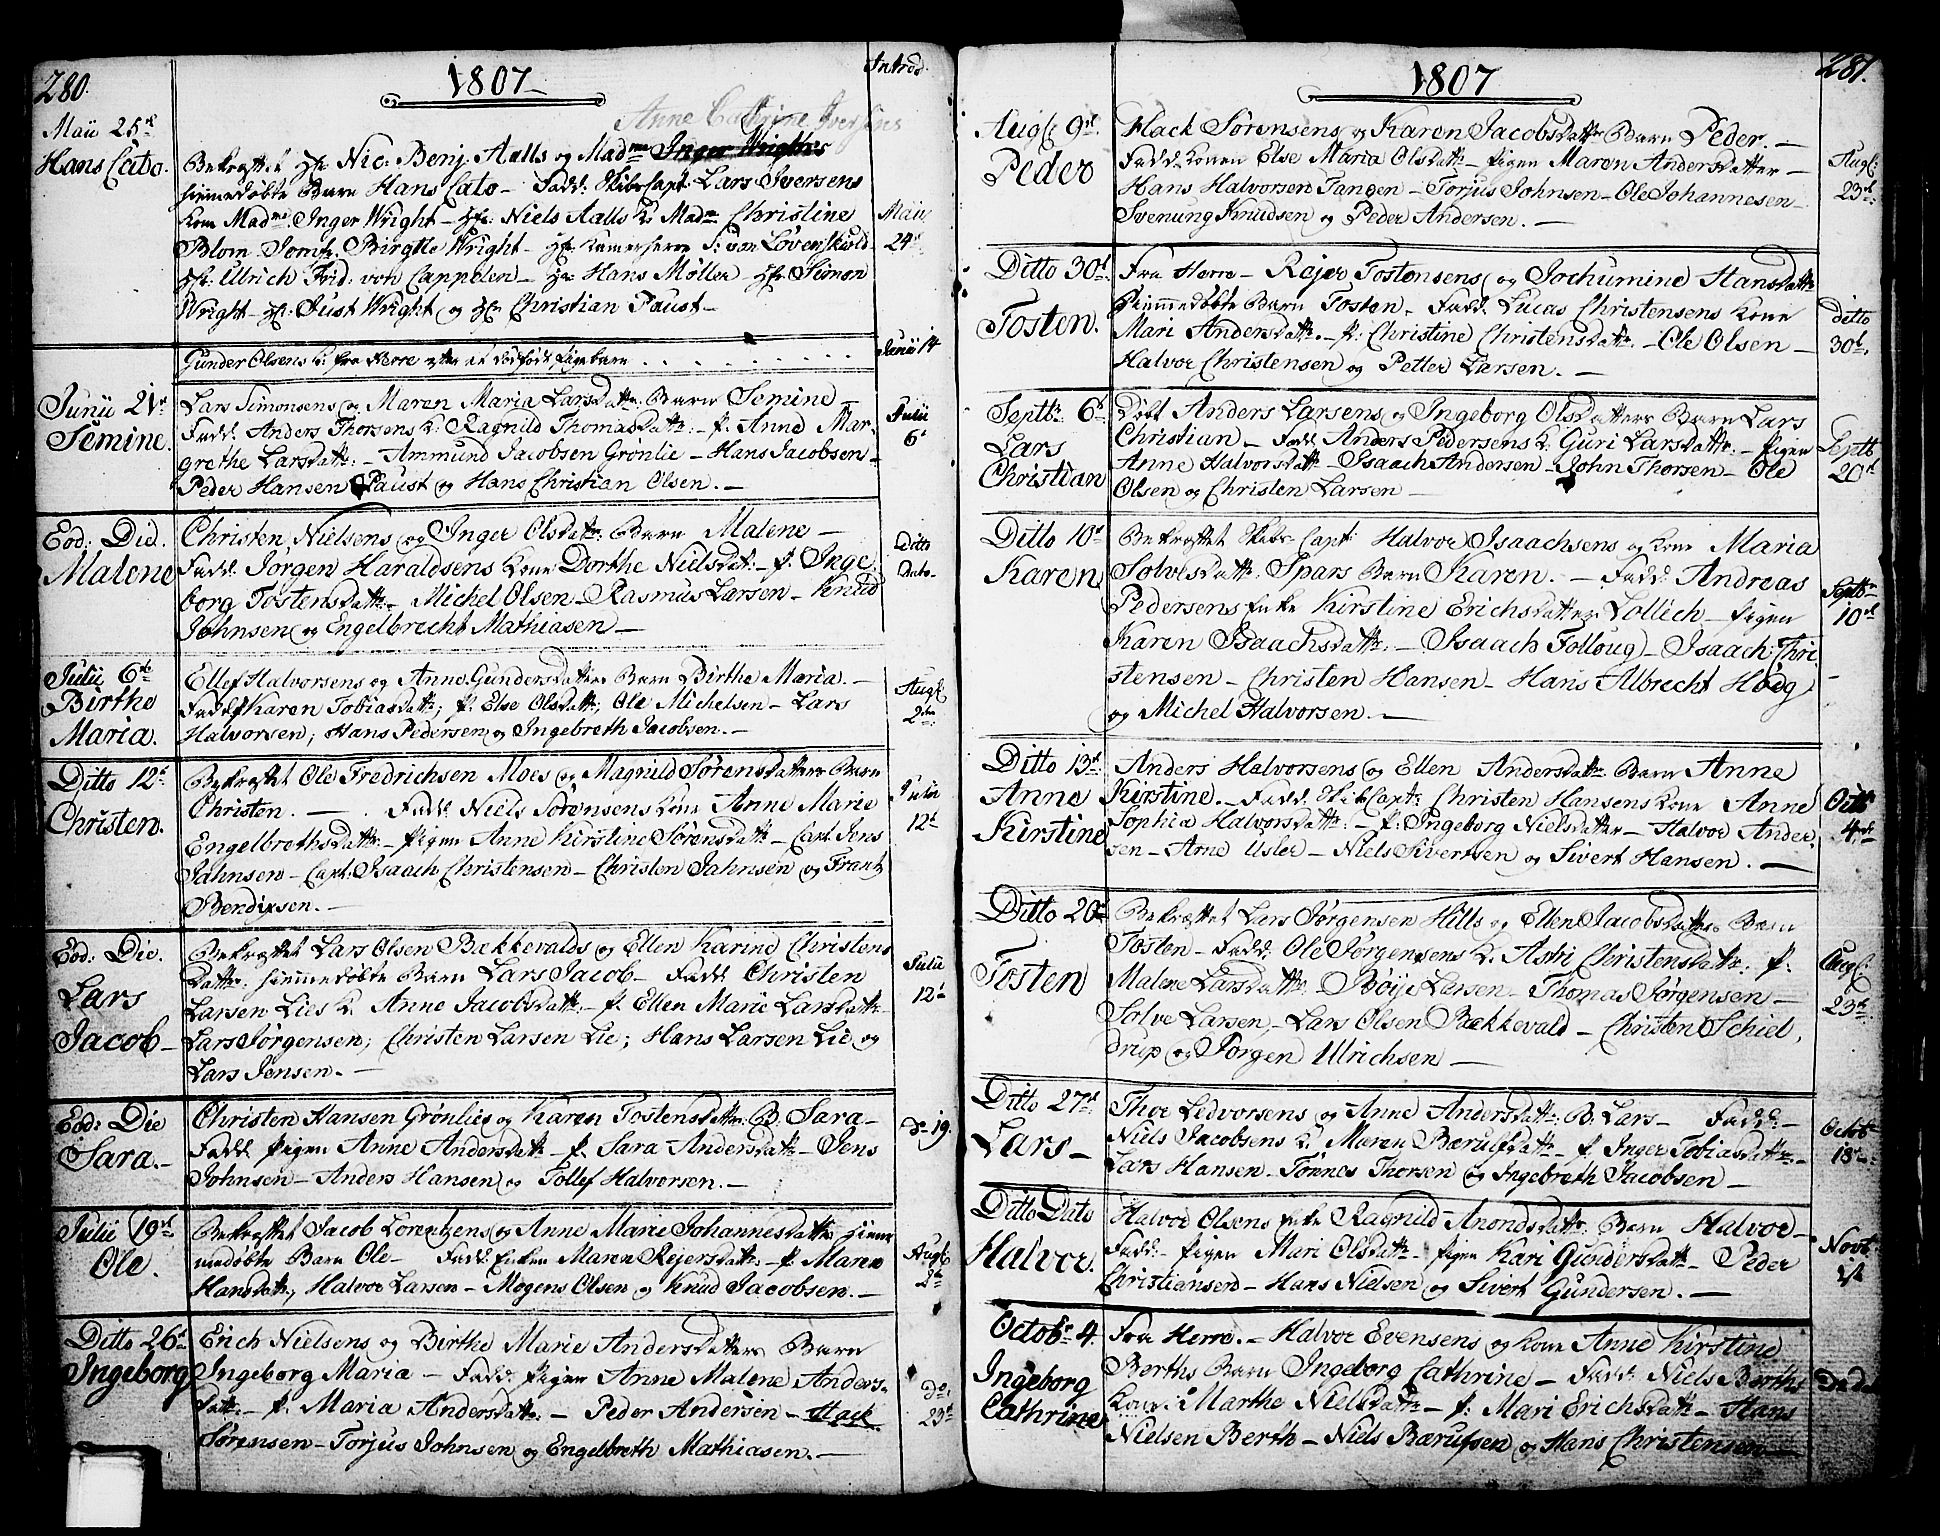 280.
1807
Introd.
Anne Cathrine Iversens
Maii 25de
Hans Cato.
Bekræftet Hr. Nic: Benj. Aalls og Madme Inger Wrights
hiemedøbte Barn Hans Cato - Fadd: Skibs Capt: Lars Iversens
Kone Madme Inger Wright - Hr: Niels Aalls K. Madme Christine
Blom - Jomfr. Birgitte Wright - Hr. Kamerherre S: von Løvenskiold -
Hr: Ullrich Frid: von Cappelen - Hr Hans Møller - Hr. Simon
Wright - Hr: Just Wright og Hr. Christian Paust -
Maii
24de
Gunder Olsens K. fra Herre efter et dødfødt Pigebarn
Junii 14
Junii 21de
Semine.
Lars Simonsens og Maren Maria Larsdattr: Barn Semine -
Fadd: Anders Thorsens K: Ragnild Thomasdattr: - P. Anne Mar-
grethe Larsdattr: - Ammund Jacobsen Grønlie - Hans Jacobsen -
Peder Hansen Paust og Hans Christian Olsen. -
Julii
6t
Eod: Die.
Malene
Christen Nielsens og Inger Olsdattr: Barn Malene -
Fadd: Jørgen Haraldsens Kone Dorthe Nielsdatr: - P. Inge-
borg Tostensdattr. - Michel Olsen - Rasmus Larsen - Knud
Johnsen og Engelbrecht Mathiasen -
Ditto
Dato -
Julii 6te
Birthe
Maria.
Ellef Halvorsens og Anne Gundersdatters Barn Birthe Maria. -
Fadd: Karen Tobiasdattr; P. Else Olsdattr; Ole Michelsen - Lars
Halvorsen; Hans Pedersen og Ingebreth Jacobsen. -
Augt
2den
Ditto 12t
Christen.
Bekræftet Ole Fredrichsen Moes og Magnild Sørensdatters Barn
Christen. - Fadd: Niels Sørensens Kone Anne Marie
Engelbrethsdattr: - Pigen Anne Kirstine Sørensdattr - Capt: Jens
Jahnsen - Capt: Isaach Christensen - Christen Jahnsen og Frantz
Bendixsen. -
Julii
12t
Eod: Die.
Lars
Jacob -
Bekræftet Lars Olsen Bækkevalds og Ellen Karine Christens
datter hiemmedøbte Barn Lars Jacob - Fadd: Christen
Larsen Lies K. Anne Jacobsdattr: - P. Ellen Marie Larsdattr -
Lars Jørgensen; Christen Larsen Lie; Hans Larsen Lie og
Lars Jensen. -
Julii
12t
Eod: Die
Sara. -
Christen Hansen Grønlies og Karen Tostensdatters B: Sara -
Fadd: Pigen Anne Andersdattr - P. Sara Andersdattr - Jens
Johnsen - Anders Hansen og Tollef Halvorsen. -
do 19.
Julii 19de
Ole.
Bekræftet Jacob Lorentzens og Anne Marie Johannesdattr: hiem
medøbte Barn Ole - Fadd: Enken Maren Rejersdattr: - P. Maren
Hansdattr; Halvor Larsen - Mogens Olsen og Knud Jacobsen. -
Augt
2t
Ditto 26t
Ingeborg
Erich Nielsens og Birthe Marie Andersdatters Barn
Ingeborg Maria - Fadd: Pigen Anne Malene Anders-
dattr: - P. Maria Andersdattr: - Peder Andersen - Flack
Sørensen - Torjus Johnsen og Engelbreth Mathiasen. -
do:
23de
281.
1807
Augt: 9de
Peder
Flack Sørensens og Karen Jacobsdattrs Barn Peder. -
Fadd: Konen Else Maria Olsdattr - Pigen Maren Andersdatter -
Hans Halvorsen Tangen - Torjus Johnsen - Ole Johannesen -
Svenung Knudsen og Peder Andersen. -
Augt:
23de
Ditto 30t
Tosten.
Fra Herre - Rejer Tostensens og Jochumine Hansdattrs
hiemmedøbte Barn Tosten. - Fadd: Lucas Christensens Kone
Mari Andersdattr. - P: Christine Christensdattr. - Ole Olsen -
Halvor Christensen og Petter Larsen. -
ditto
30t.
Septbr 6t
Lars
Christian
Døbt Anders Larsens og Ingeborg Olsdatters Barn Lars
Christian - Fadd: Anders Pedersens K. Guri Larsdattr. - Pigen
Anne Halvorsdattr - Isaach Andersen - John Thorsen - Ole
Olsen og Christen Larsen -
Septb
20t
Ditto 10t
Karen
Bekræftet Skibs Capt: Halvor Isaachsens og Kone Maria
Solvesdattr: Spars Barn Karen. - Fadd: Andreas
Pedersens Enke Kirstine Erichsdatter Lollich - Pigen
Karen Isaachsdattr. - Isaach Folloug - Isaach Chri-
stensen - Christen Hansen - Hans Albrecht Hoeg
og Michel Halvorsen. -
Septbr
10de
Ditto 13t
Anne
Kirstine
Anders Halvorsens og Ellen Andersdattr: Barn Anne
Kirstine. - Fadd: Skibs Capt: Christen Hansens Kone Anne
Sophia Halvorsdattr: - P: Ingeborg Nielsdatter - Halvor Ander-
sen - Arne Usler - Niels Sivertsen og Sivert Hansen. -
Octb
4de
Ditto 20t
Tosten
Bekræftet Lars Jørgensen Hills og Ellen Jacobsdattrs Barn
Tosten - Fadd: Ole Jørgensens K. Astri Christensdattr: P.
Malene Larsdattr: Bøije Larsen - Thomas Jørgensen -
Solve Larsen - Lars Olsen Bækkevald - Christen Schiel-
drup og Jørgen Ulrichsen -
Augt:
23de
Ditto 27t
Lars -
Thor Ledvorsens og Anne Andersdattr: B: Lars - Fadd: -
Niels Jacobsens K. Maren Bærulfsdattr - P. Inger Tobiasdattr -
Lars Hansen - Tønnes Thorsen og Ingebreth Jacobsen -
Octobr
18de
Ditto Dato
Halvor.
Halvor Olsens Enke Ragnild Anondsdattr: Barn Halvor -
Fadd: - Pigen Mari Olsdattr - Pigen Kari Gundersdattr - Peder
Christiansen - Hans Nielsen og Sivert Gundersen. -
Novb
1st
Octobr 4.
Ingeborg
Cathrine
Fra Herre. - Halvor Evensens og Kone Anne Kirstine
Berths Barn Ingeborg Cathrine - Fadd: Niels Berths
Kone Marthe Nielsdattr - P. Mari Erichsdattr - Hans
Nielsen Berth - Niels Bærulfsen og Hans Christensen -
Do Do